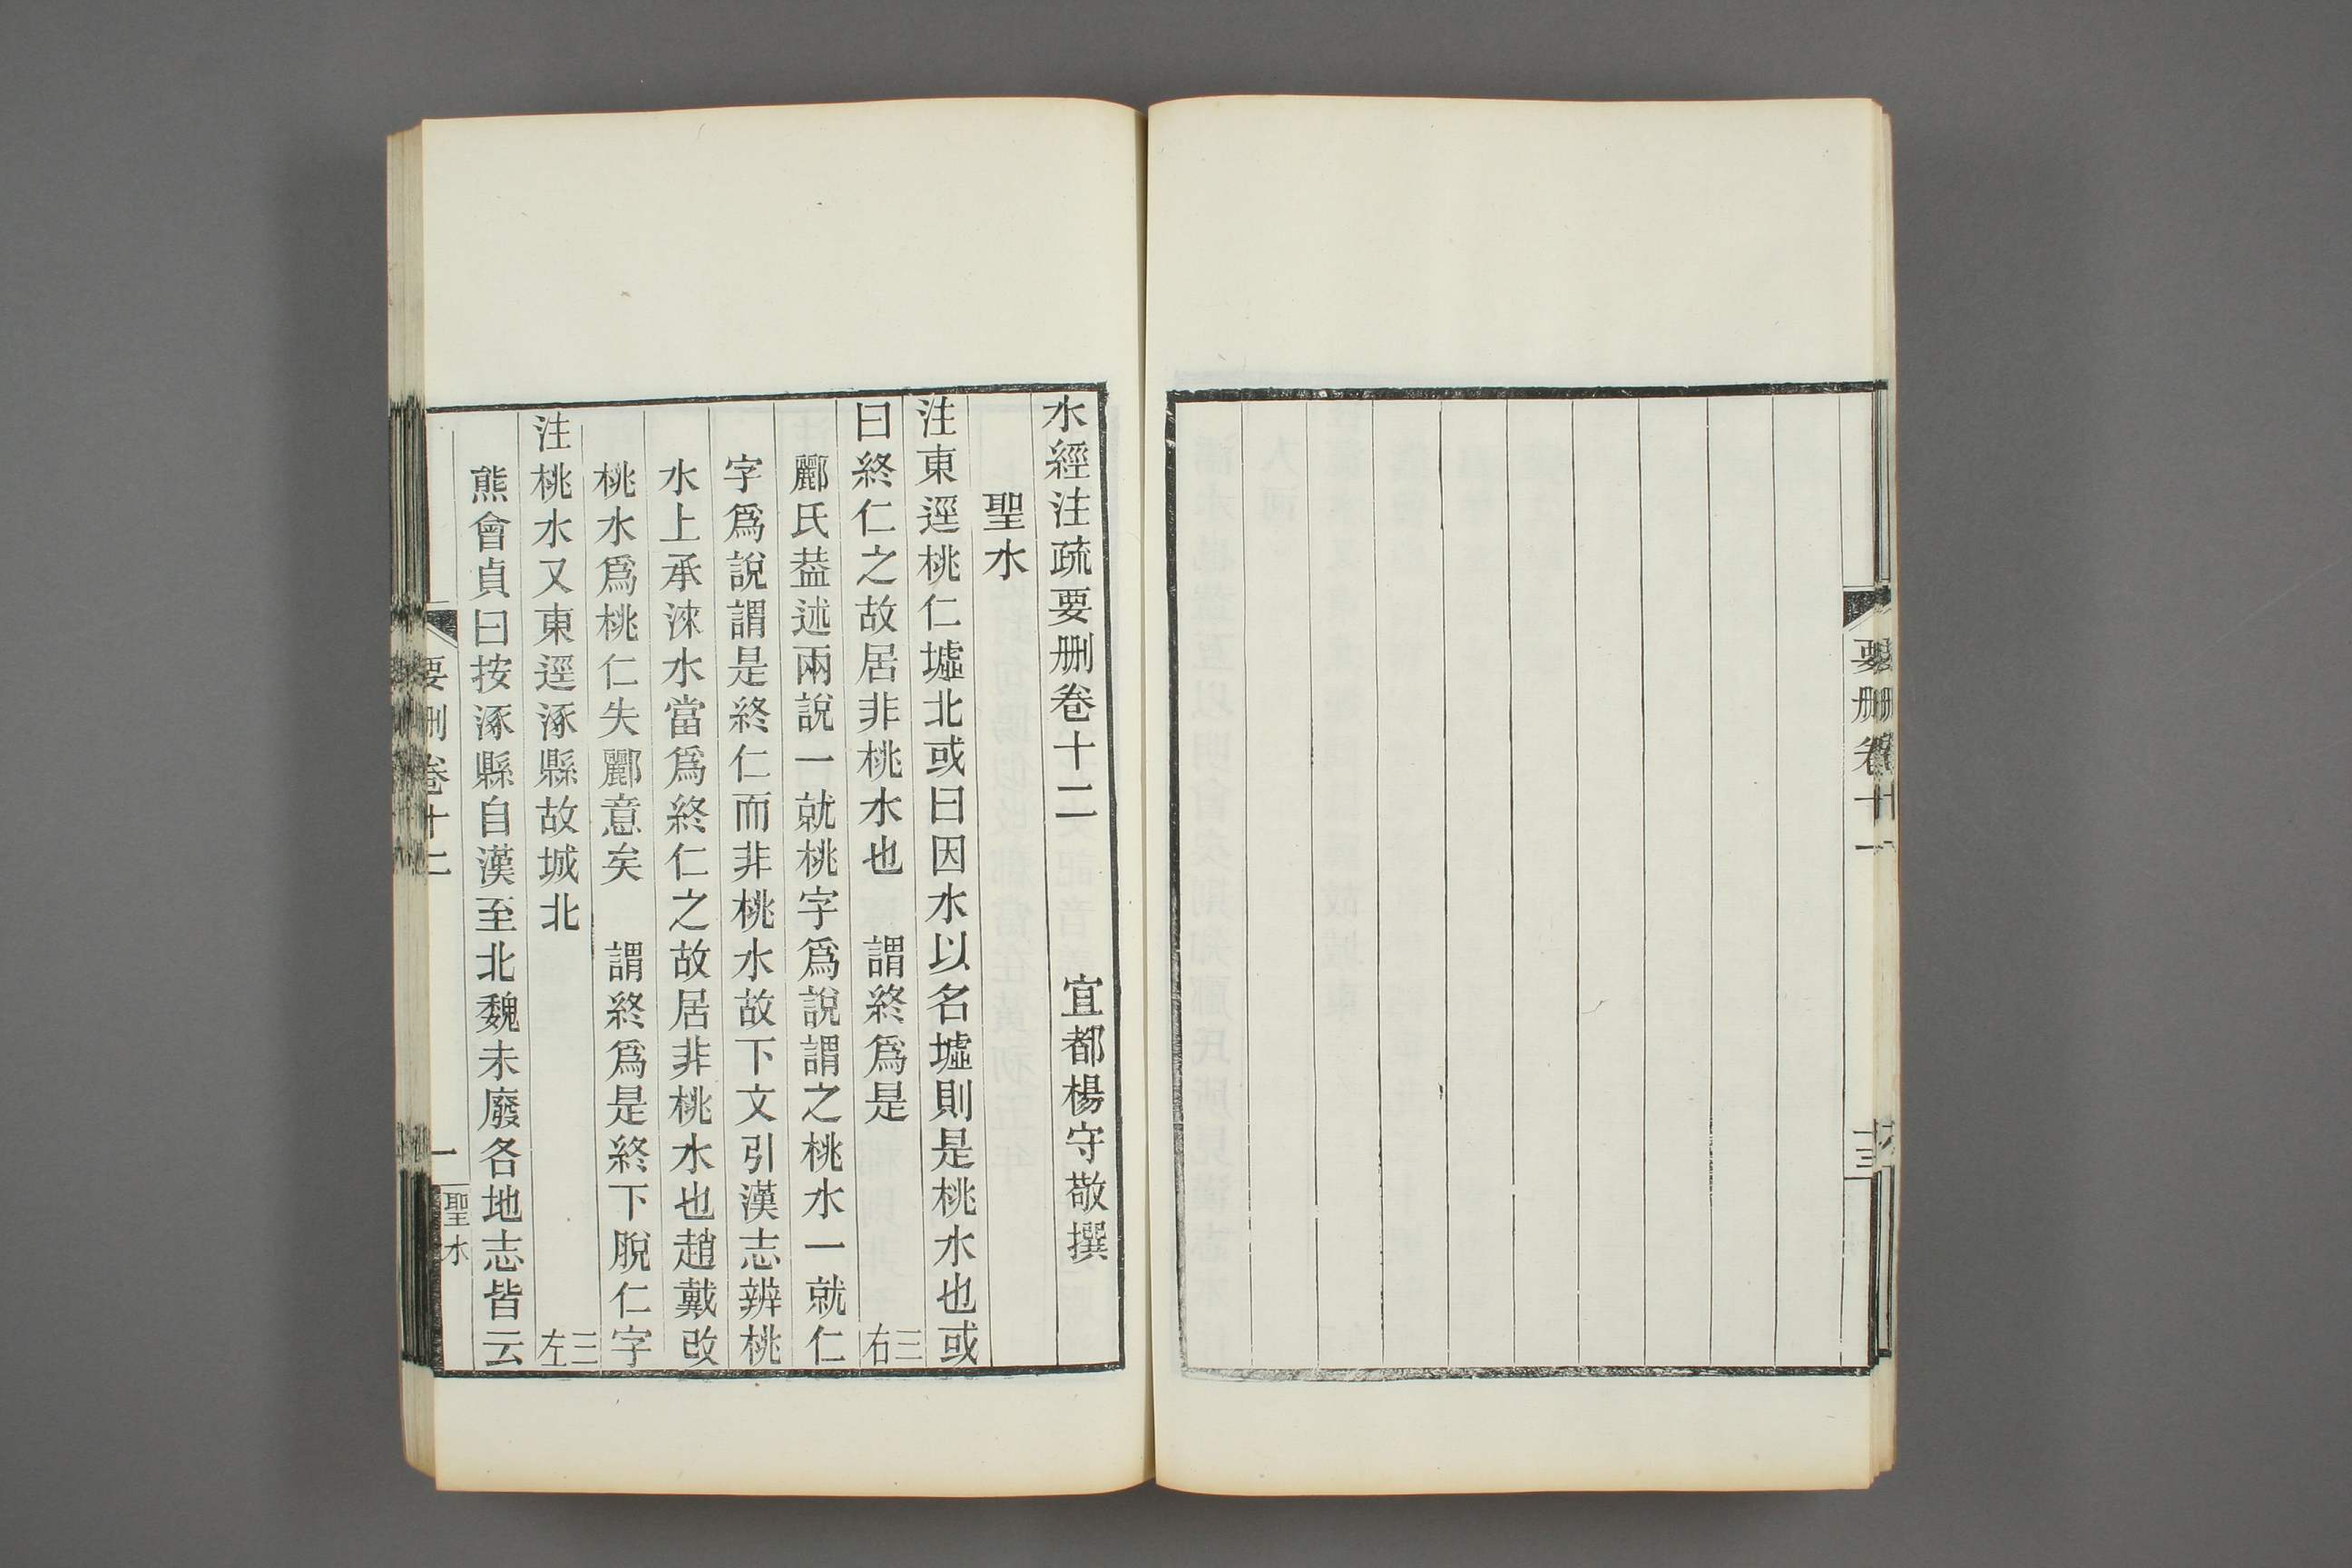 要刪卷十一
十三
水經注疏要刪卷十二
宜都楊守敬撰
聖水
注東逕桃仁墟北或曰因水以名墟則是桃水也或
曰終仁之故居非桃水也　謂終爲是
三右
酈氏葢述兩說一就桃字爲說謂之桃水一就仁
字爲說謂是終仁而非桃水故下文引漢志辨桃
水上承淶水當爲終仁之故居非桃水也趙戴改
桃水爲桃仁失酈意矣　謂終爲是終下脫仁字
注桃水又東逕涿縣故城北
三左
熊會貞曰按涿縣自漢至北魏未廢各地志皆云
要刪卷十二
一
聖水